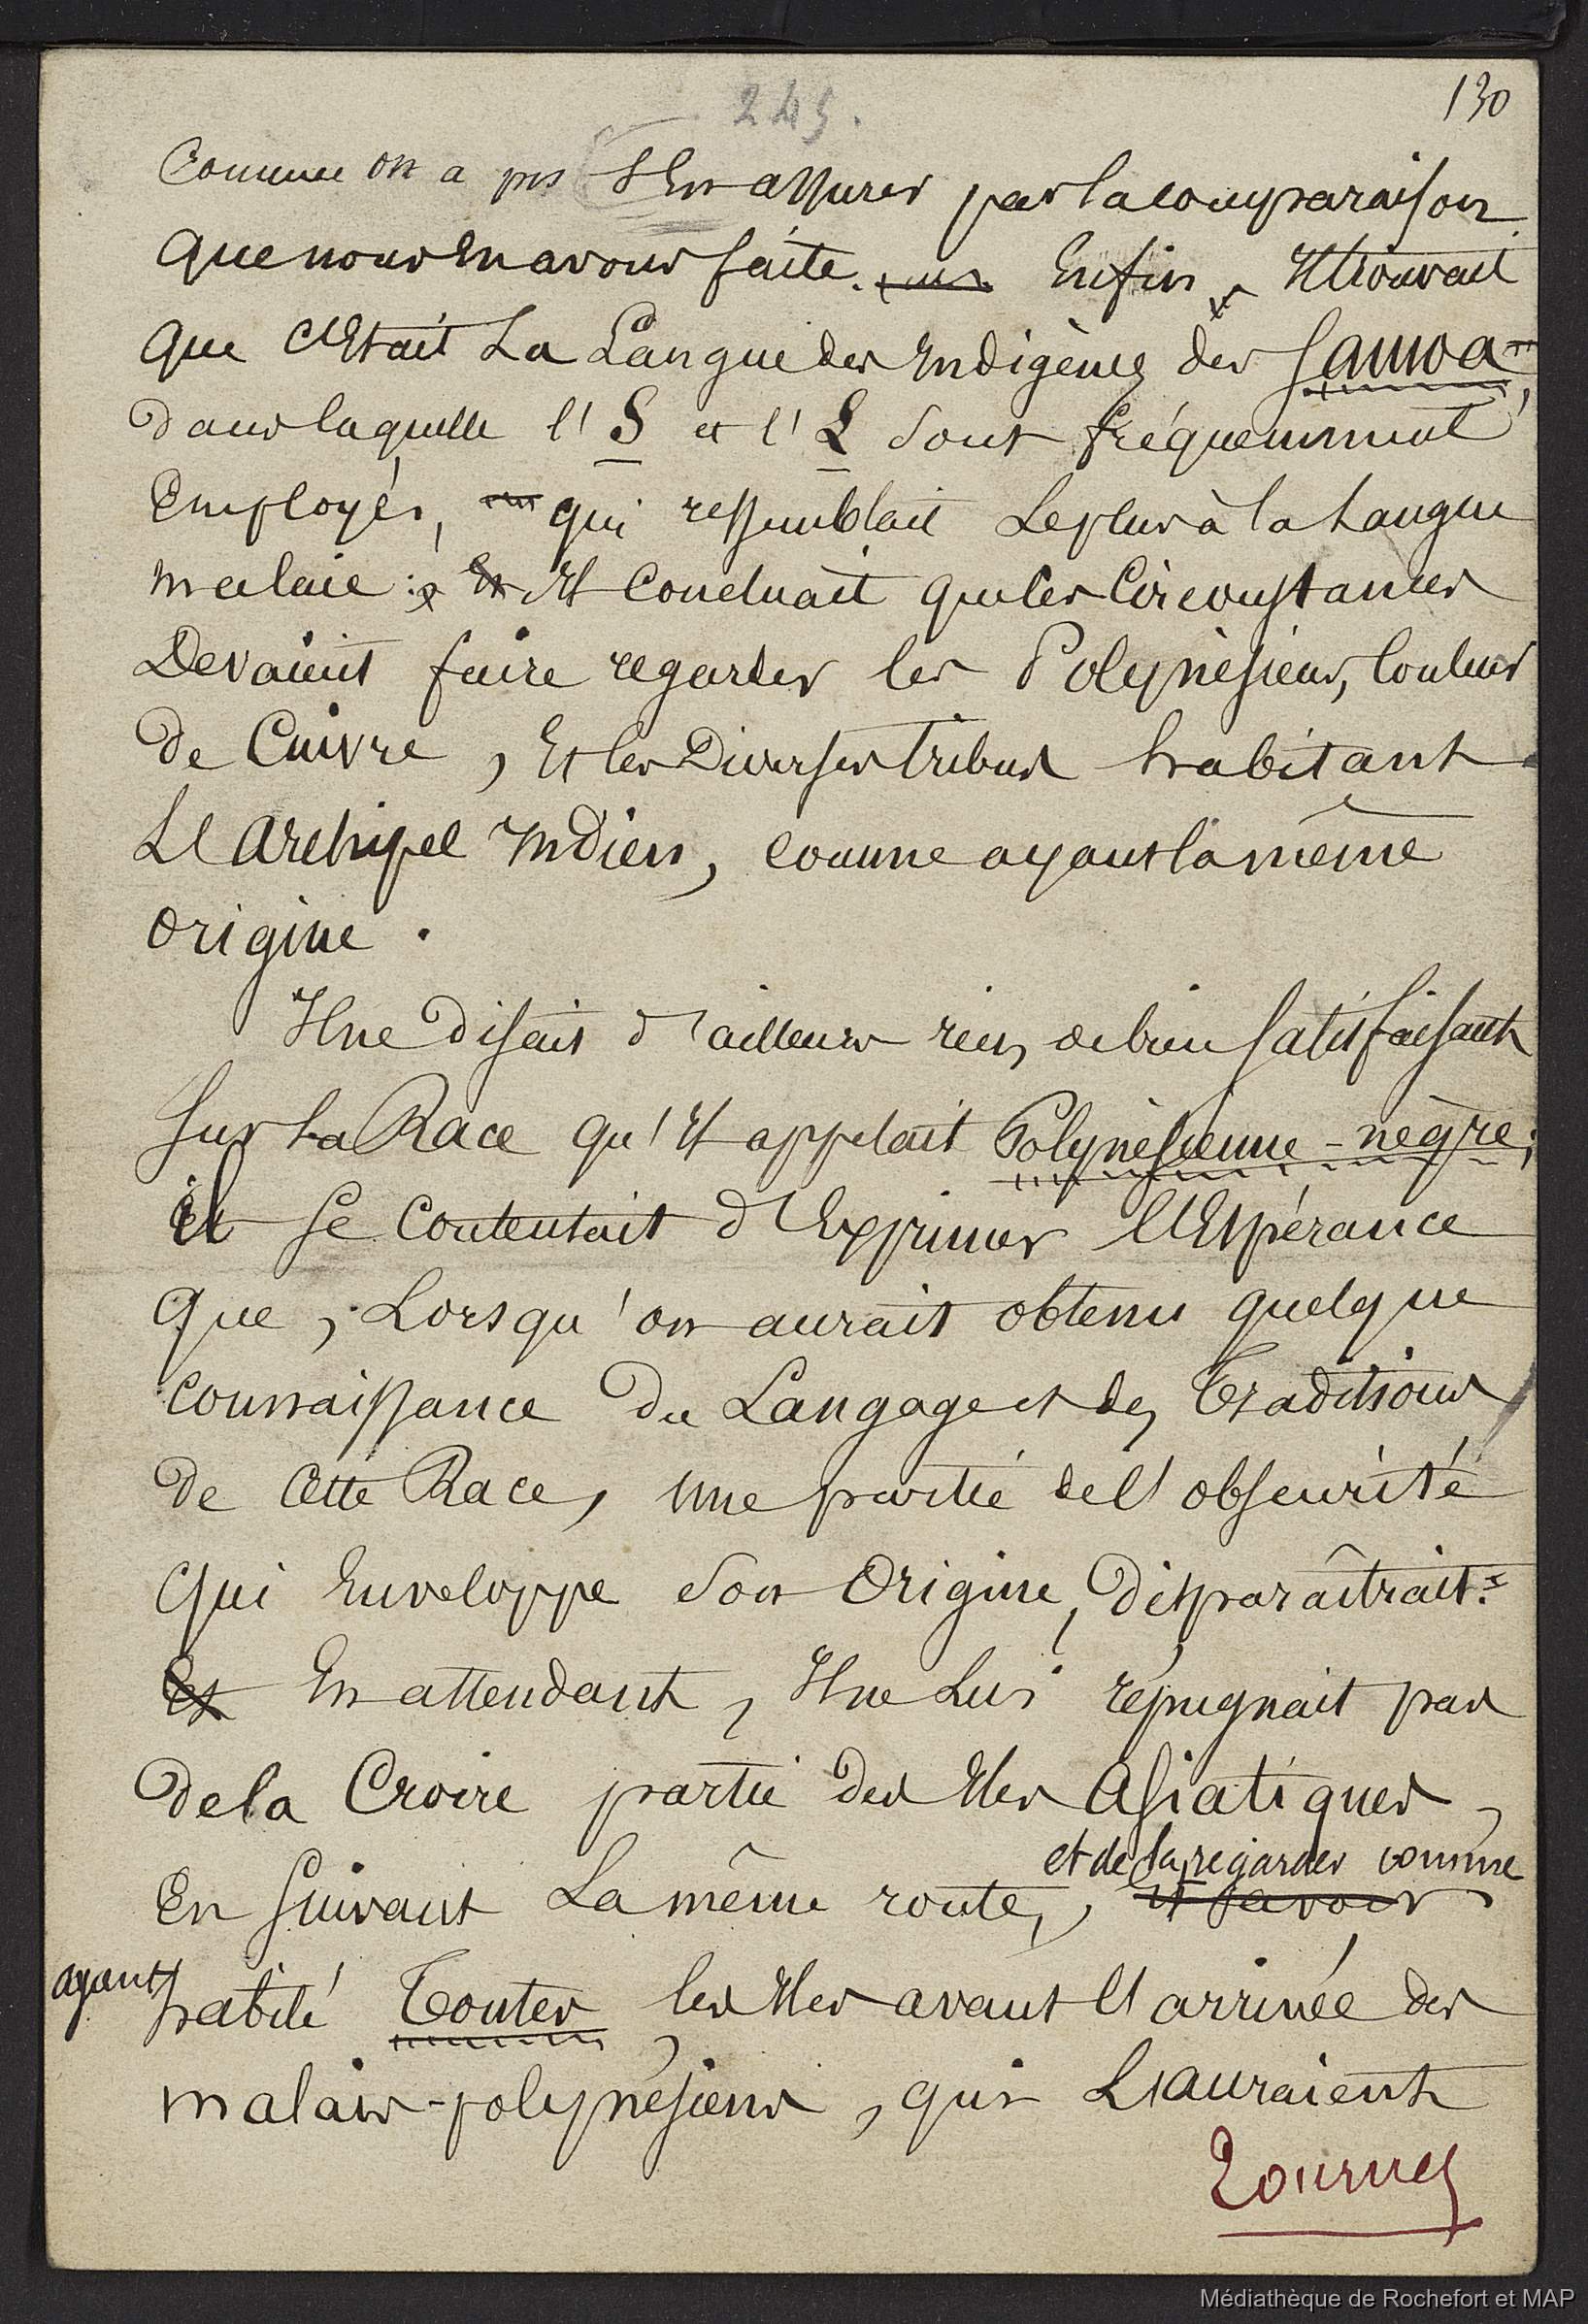 245.
130
Comme on a pu s'en assurer par la comparaison
que nous en avons faite. Enfin, Il trouvait
que c'Etait La Langue des Indigènes des Samoa,
dans laquelle l'S et l'L sont fréquemment
Employés, qui ressemblait Le plus à la Langue
malaie; Et Il Concluait que les Circonstances
Devaient faire regarder les Polynésiens, Couleur
de Cuivre, Et les Diverses Tribus habitant
L'Archipel Indien, comme ayant la même
origine.
Il ne disait d'ailleurs rien de bien satisfaisant
sur La Race qu'Il appelait Polynésienne-nègre;
il se Contentait d'Exprimer l'Espérance
que, Lorsqu'on aurait obtenu quelque
connaissance du Langage et des Traditions
de Cette Race, une partie de l'obscurité
qui Enveloppe son Origine, disparaîtrait.
Et En attendant, Il ne Lui répugnait pas
de la Croire partie des Iles Asiatiques,
et de la regarder comme
En suivant La même route, et savoir
ayant
habité Toutes les Iles avant l'arrivée des
malais-polynésiens, qui L'auraient
Tournez
Médiathèque de Rochefort et MAP